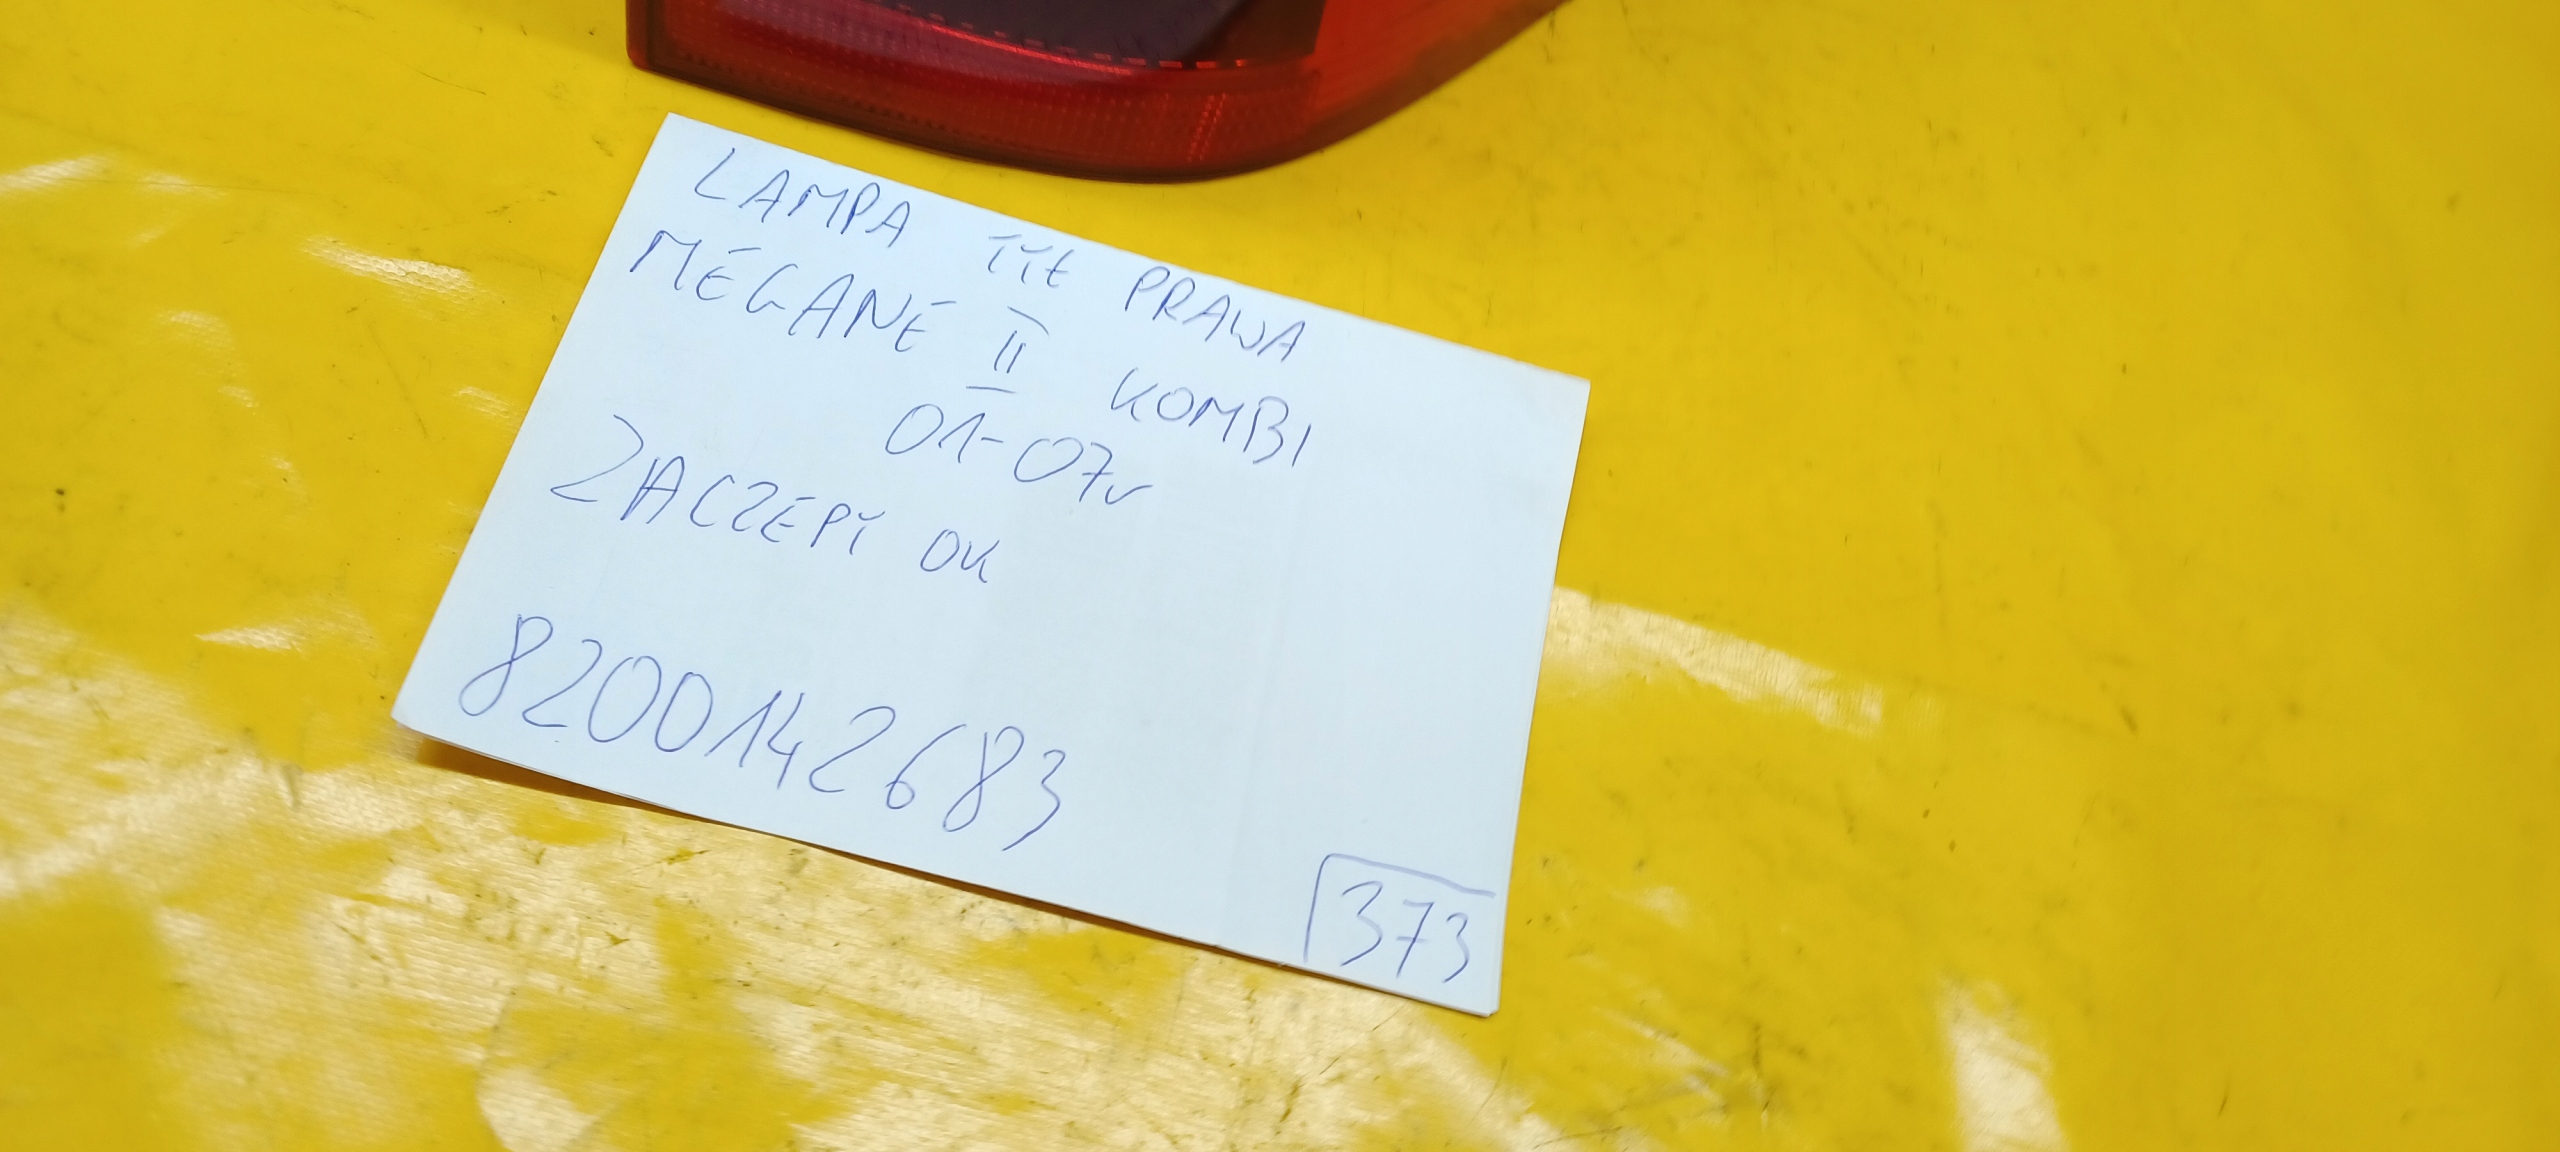 LAMPA TYŁ PRAWA
MEGANE II KOMBI
01-07r
ZACZEPY OK
8200142683
373